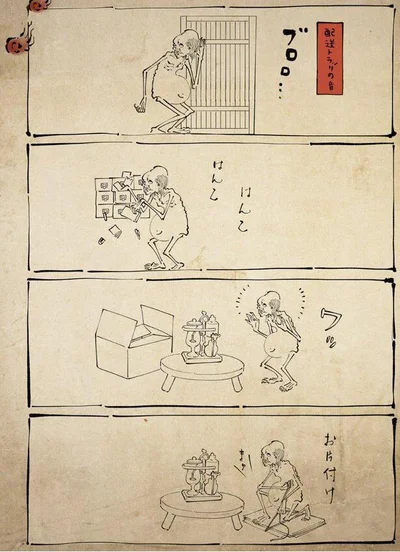 配送トラックの音
ブロロ…
はんこ
はんこ
ワッ
お片付け